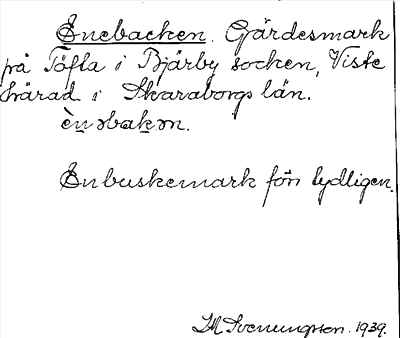 Enebacken. Gärdesmark
på Töfta i Bjärby socken, Viste
härad i Skaraborgs län.
èn̲əbak̲ən.
Enbuskemark förr tydligen.
Svenungsson. 1939.